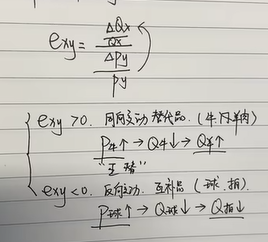 exy = ΔQx / Qx / ΔPy / Py
exy > 0. 同向变动 替代品. (牛肉羊肉)
P牛↑ → Q牛↓ → Q羊↑
exy < 0. 反向变动. 互补品 (球、拍).
P球↑ → Q球↓ → Q拍↓